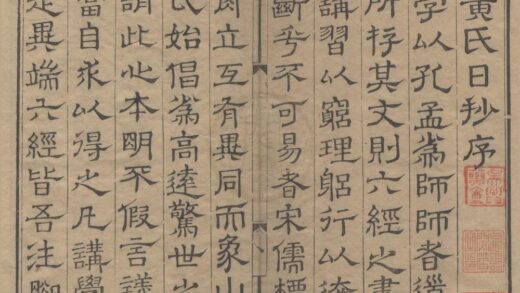 黄氏日抄序
學以孔孟為師師者
所存其文則六經之書
講習以窮理躬行以
斷乎不可易者宋儒標
門立互有異同而象山
氏始倡為高遠驚世之
謂此心本明不假言議
當自求以得之凡講學
是異端六經皆吾注腳